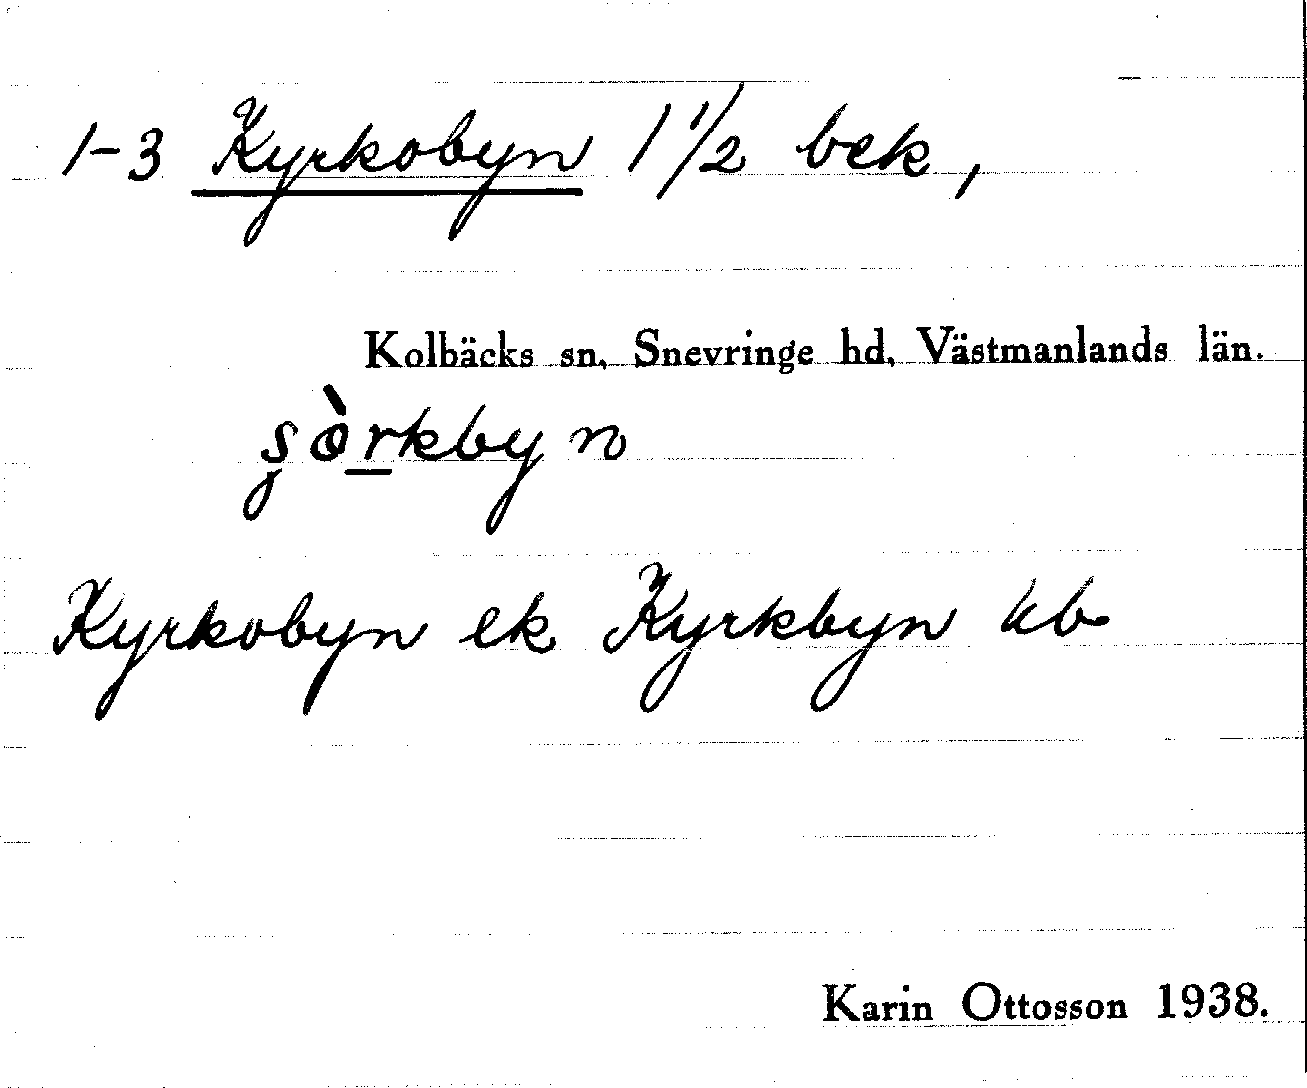 1-3 Kyrkobyn 1 1/2 bek,
Kolbäcks sn, Snevringe hd, Västmanlands län.
şòr̲kbyn
Kyrkobyn ek Kyrkbyn kb
Karin Ottosson 1938.